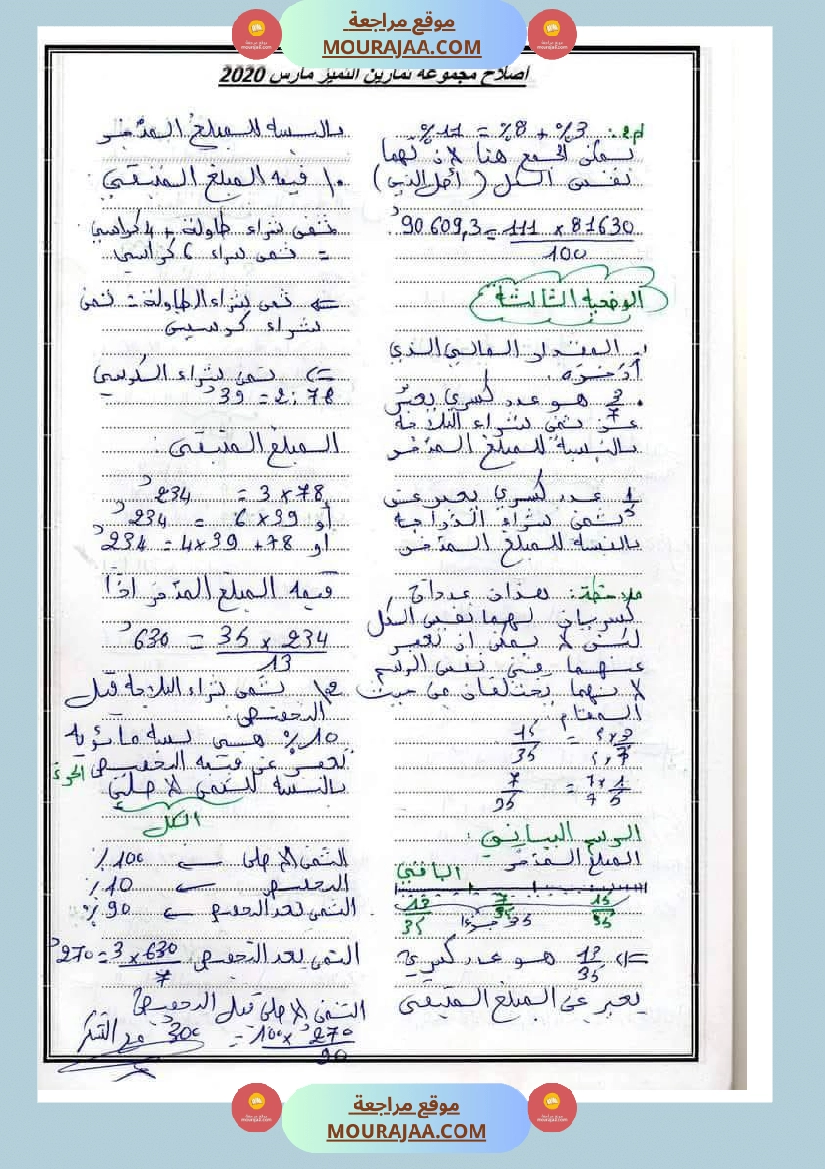 موقع مراجعة
MOURAJAA.COM
اصلاح مجموعة تمارين التميز مارس 2020
3% + 8% = 11%
يمكن الجمع هنا لأن لهما
نفس الكل (أصل الدين)
81630 x 111 = 90609,3د
100
الوضعية الثالثة
المقدار المالي الذي
ادّخره.
3/7 هو عدد كسري يعبّر
عن ثمن شراء الثلاجة
بالنسبة للمبلغ المدّخر
1/5 عدد كسري يعبر عن
ثمن شراء الدراجة
بالنسبة للمبلغ المدّخر
ملاحظة: هذان عددان
كسريان لهما نفس الكل
لكن لا يمكن ان نعبر
عنهما في نفس الرسم
لأنهما يختلفان من حيث
المقام
3x5 = 15
7x5 35
1x7 = 7
5x7 35
الرسم البياني:
المبلغ المدّخر
الباقي
15/35 7/35 13/35
35 جزءا
=> 13/35 هو عدد كسري
يعبر عن المبلغ المتبقي
بالنسبة للمبلغ المدّخر
1. قيمة المبلغ المتبقي
ثمن شراء طاولة + 4 كراسي
= ثمن شراء 6 كراسي
<= ثمن شراء الطاولة = ثمن
شراء كرسيين
=> ثمن شراء الكرسي
78 : 2 = 39د
المبلغ المتبقي:
78 x 3 = 234د
أو 39 x 6 = 234د
أو 78 + 39x4 = 234د
قيمة المبلغ المدّخر اذا
234 x 35 = 630د
13
2) ثمن شراء الثلاجة قبل
التخفيض:
10% هي نسبة مائوية
تعبر عن قيمة التخفيض الجزء
بالنسبة للثمن الأصلي
الكل
الثمن الأصلي → 100%
التخفيض → 10%
الثمن بعد التخفيض → 90%
الثمن بعد التخفيض 630 x 3 = 270د
7
الثمن الأصلي قبل التخفيض
270د x 100 = 300د مع الشكر
90
موقع مراجعة
MOURAJAA.COM